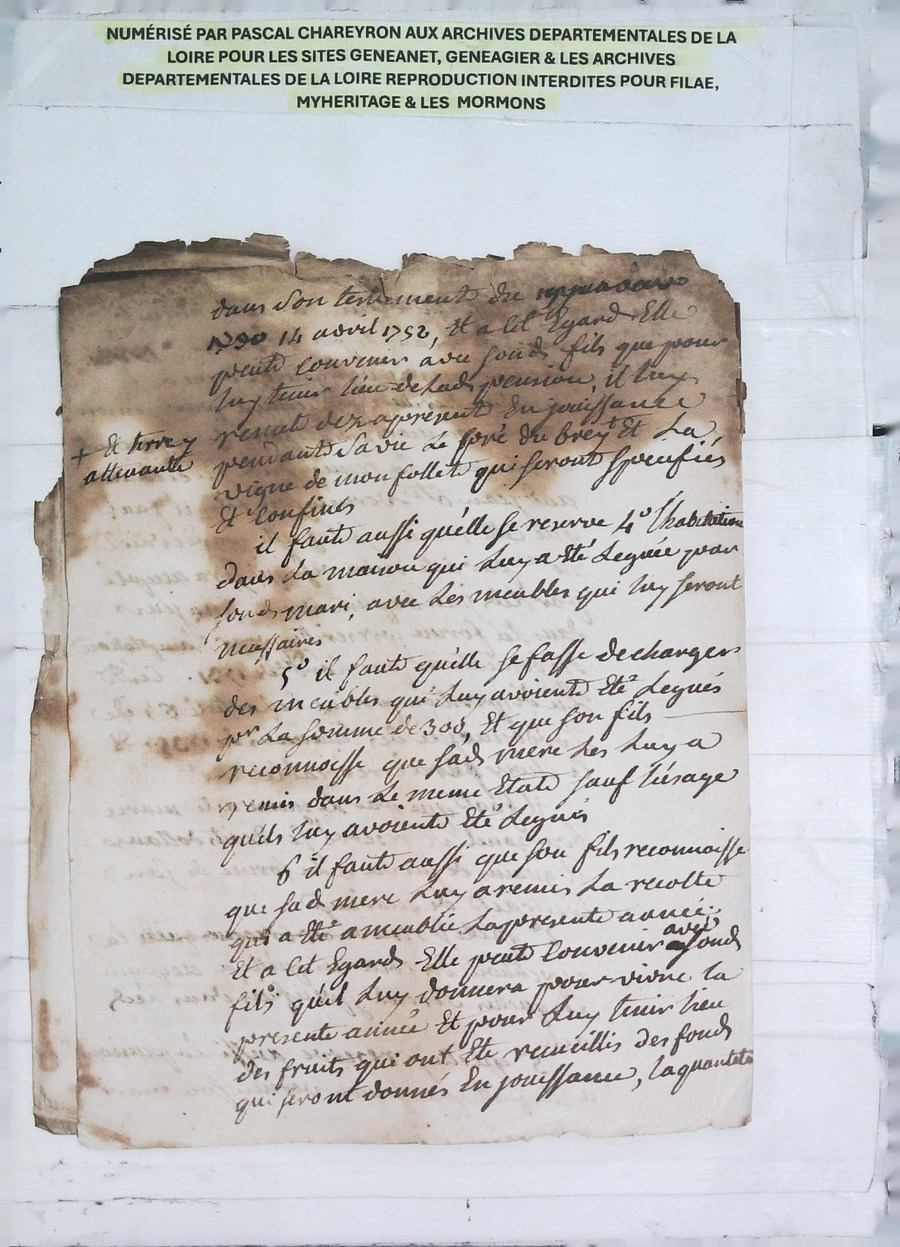 NUMÉRISÉ PAR PASCAL CHAREYRON AUX ARCHIVES DEPARTEMENTALES DE LA
LOIRE POUR LES SITES GENEANET, GENEAGIER & LES ARCHIVES
DEPARTEMENTALES DE LA LOIRE REPRODUCTION INTERDITES POUR FILAE,
MYHERITAGE & LES MORMONS
dans son testement du
14 avril 1752, Et a Cet Egard Elle
peut Convenir avec sond fils que pour
luy tenir lieu de lad pension, il luy
remet dez apresent En jouissance
+ Et terre y
attenante
pendant sa vie Le pré du brey Et La
vigne de monfollet qui seront spécifiés
Et Confinés
il faut aussi qu'elle se reserve 4° l'habitation
dans La maison qui Luy a Eté Leguée par
sond mari, avec Les meubles qui luy seront
necessaires
5° il faut qu'elle se fasse decharger
des meubles qui Luy avoient Eté Legués
pr La somme de 300, Et que son fils
reconnoisse que sad mere Les Luy a
remis dans Le meme Etat sauf l'usage
qu'ils luy avoient Eté Legués
6 il faut aussi que son fils reconnoisse
que sad mere Luy a remis La recolte
qui a Eté ameublie La presente année,
Et a Cet Egard Elle peut Convenir avec sond
fils qu'il Luy donnera pour vivre la
presente année Et pour Luy tenir lieu
des fruits qui ont Eté recueillis des fonds
qui seront donnés En jouissance, la quantité